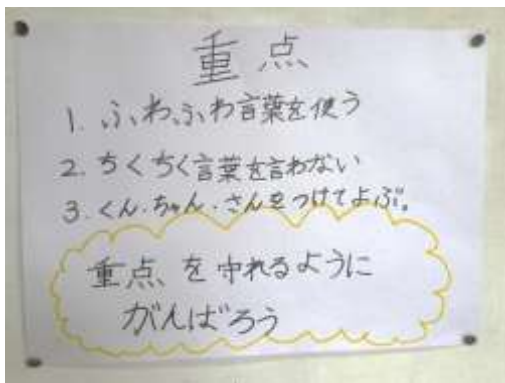 重点
1. ふわふわ言葉を使う
2. ちくちく言葉を言わない
3. くん.ちゃん.さんをつけてよぶ。
重点を守れるように
がんばろう